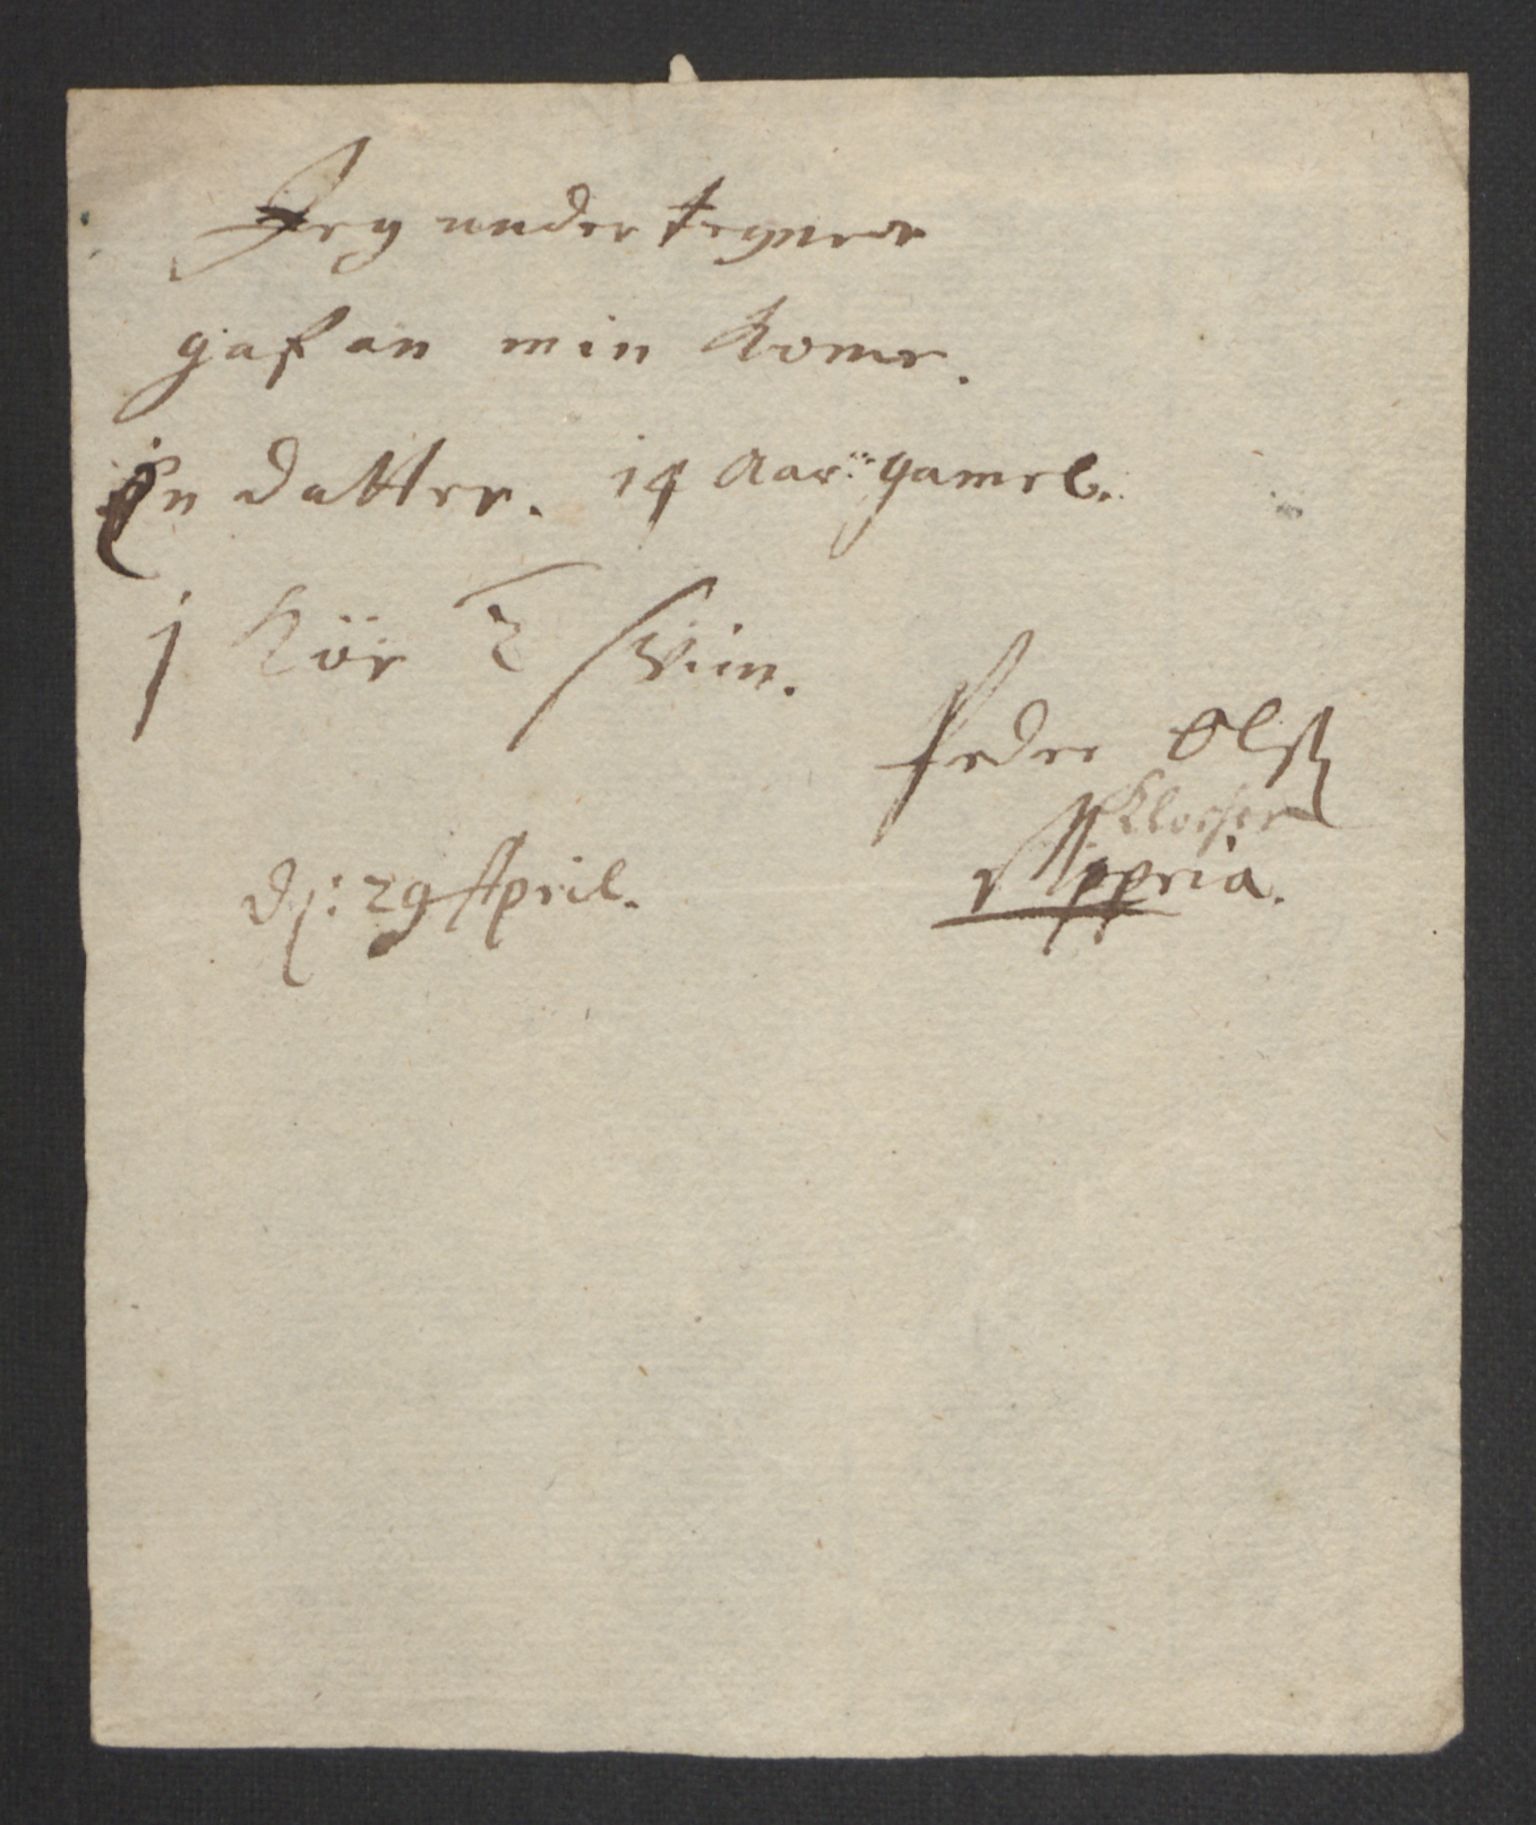 Jeg under tegner
gaf an min Kone.
En datter. 14 Aar gamel.
j Kör 2 Sviin.
Peder Olß
Klocher
Mppria.
d: 29 April.